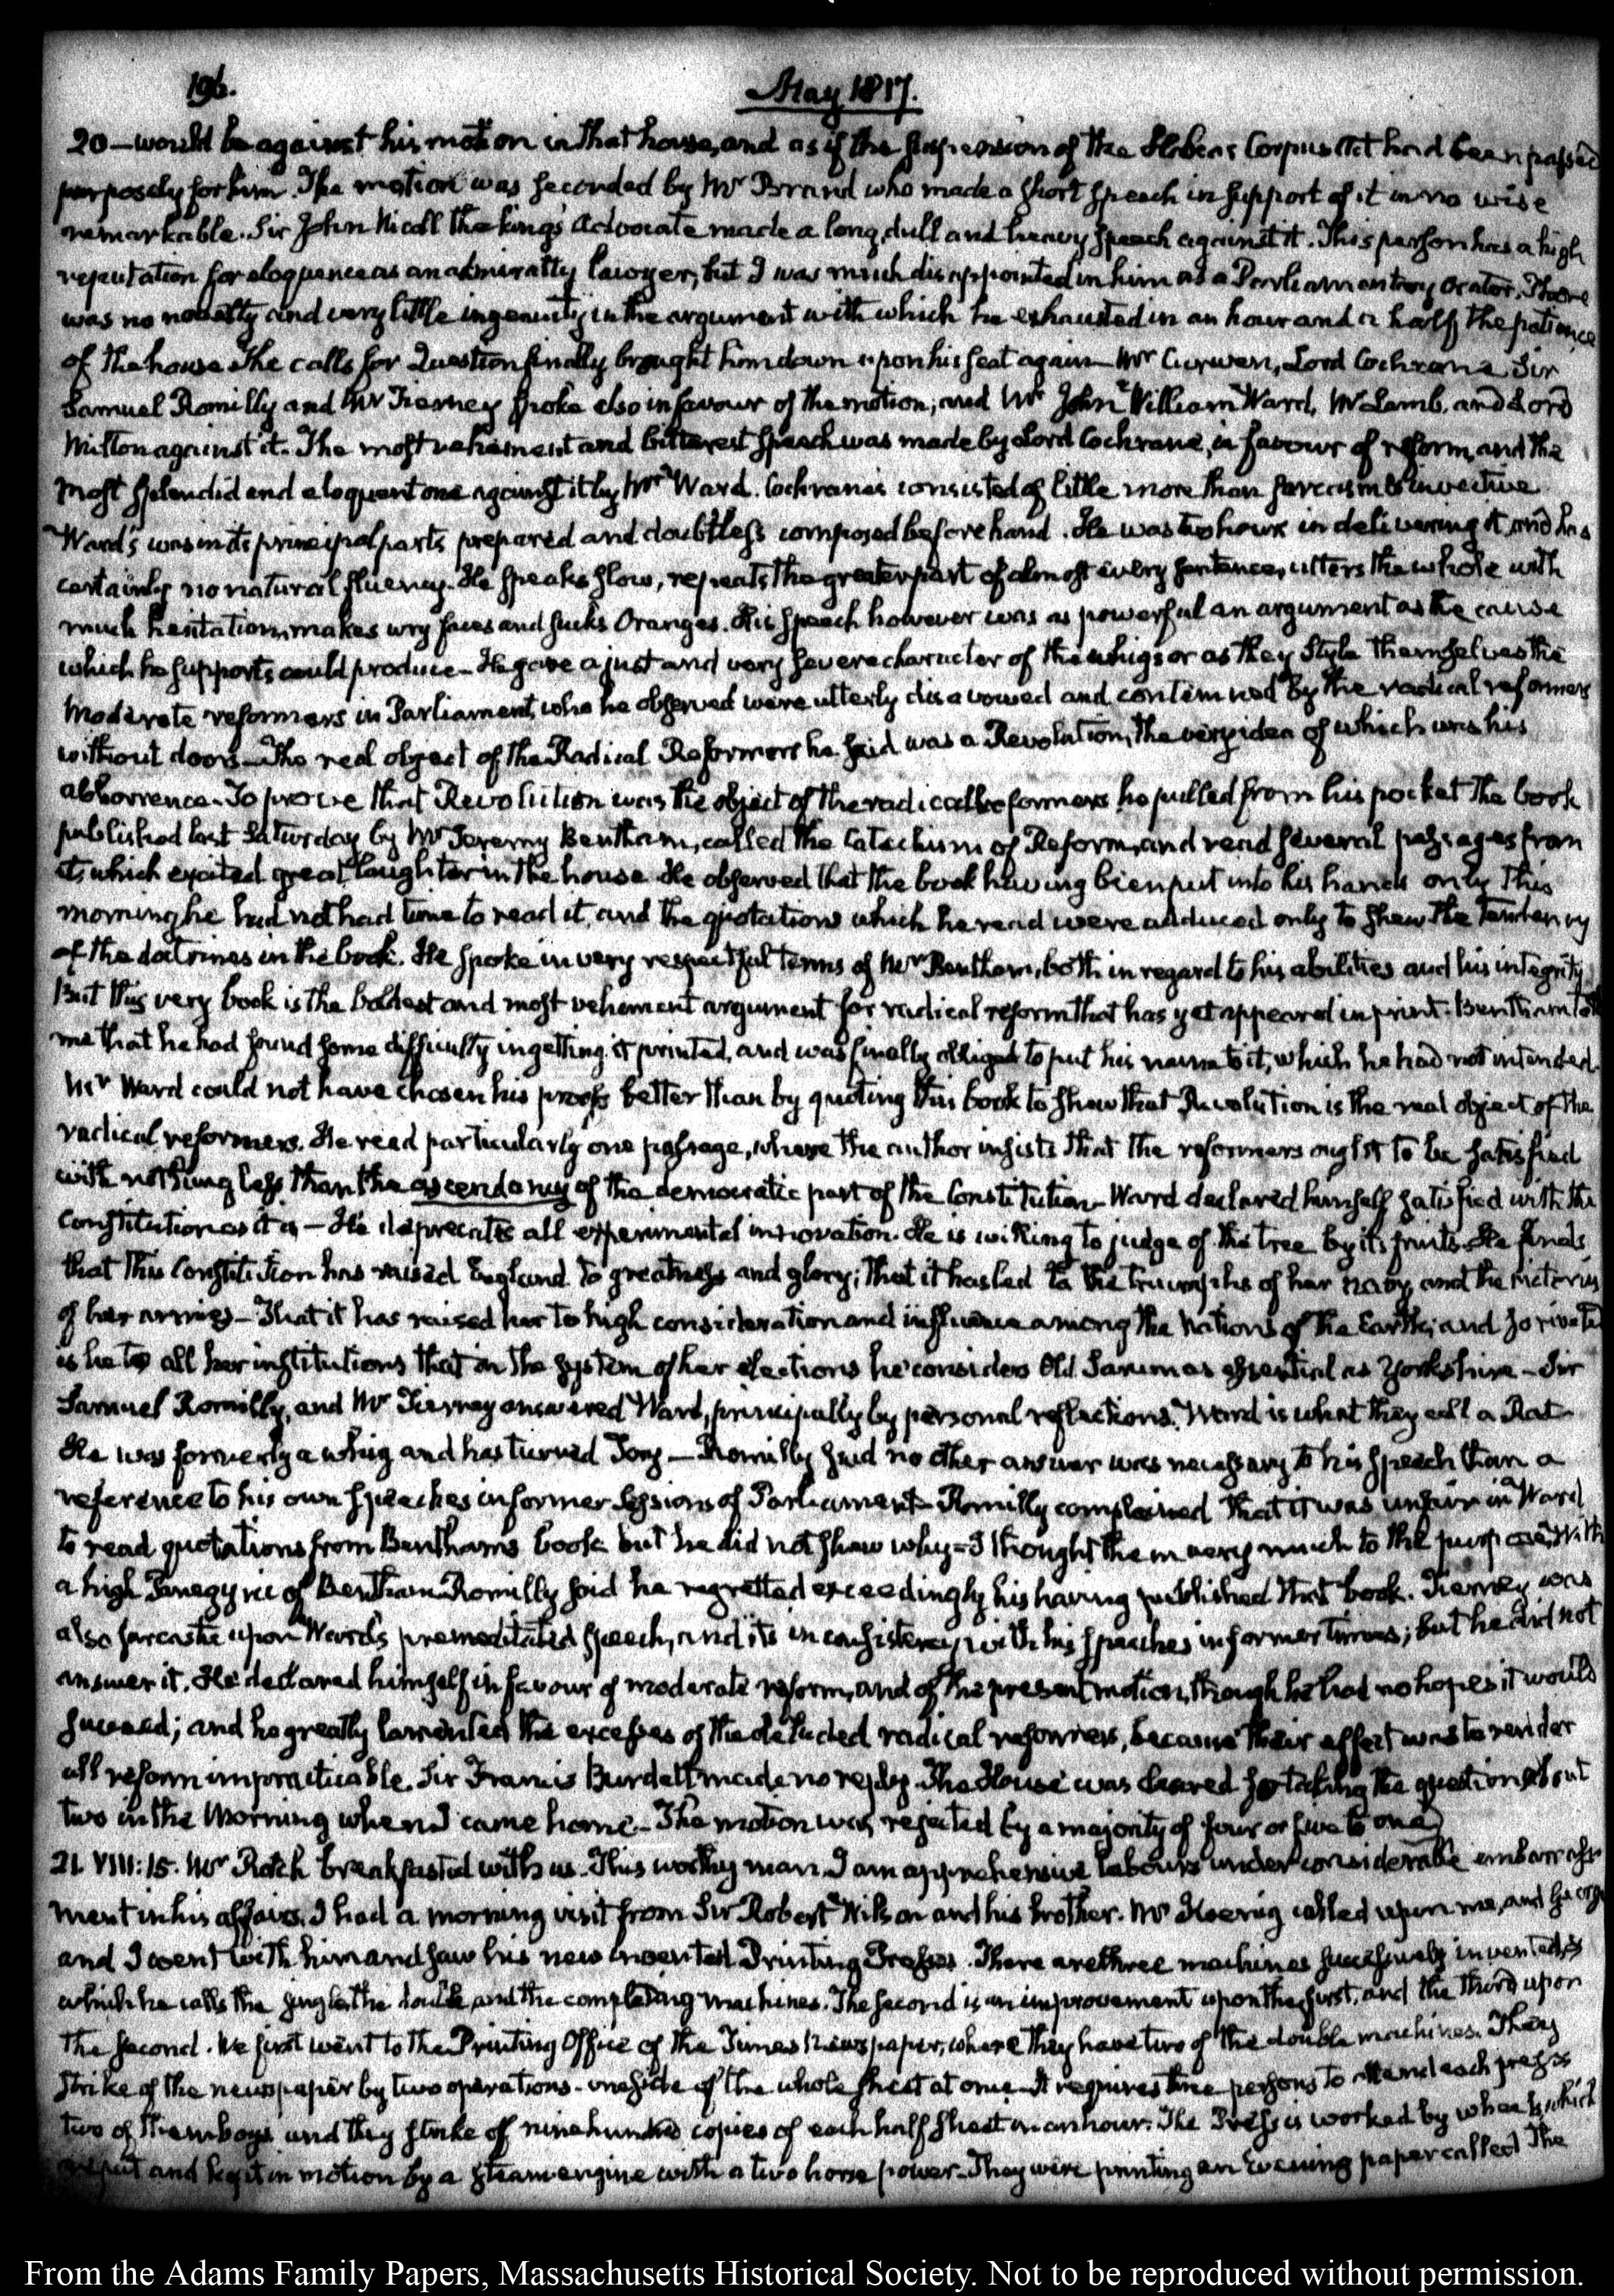 196.
May 1817.
20 — would be against his motion in that house, and as if the suspension of the Habeas Corpus Act had been passed
purposely for him. The motion was seconded by Mr Brand who made a short speech in support of it in no wise
remarkable. Sir John Nicoll the king's Advocate made a long, dull and heavy speech against it. This person has a high
reputation for eloquence as an admiralty lawyer, but I was much disappointed in him as a Parliamentary Orator. There
was no novelty and very little ingenuity in the argument with which he exhausted in an hour and a half the patience
of the house. The calls for Question finally brought him down upon his seat again — Mr Curwen, Lord Cochrane, Sir
Samuel Romilly and Mr Tierney spoke also in favour of the motion; and Mr John William Ward, Mr Lamb, and Lord
Milton against it. The most vehement and bitterest speech was made by Lord Cochrane, in favour of reform, and the
most splendid and eloquent one against it by Mr Ward. Cochrane's consisted of little more than sarcasm & invective.
Ward's was in its principal parts prepared and doubtless composed beforehand. He was two hours in delivering it, and has
certainly no natural fluency. He speaks slow, repeats the greater part of almost every sentence, utters the whole with
much hesitation, makes wry faces and sucks Oranges. His speech however was as powerful an argument as the cause
which he supports could produce — He gave a just and very severe character of the whigs or as they style themselves the
Moderate reformers in Parliament, who he observed were utterly disavowed and contemned by the radical reformers
without doors — The real object of the Radical Reformers he said was a Revolution, the very idea of which was his
abhorrence — To prove that Revolution was the object of the radical reformers he pulled from his pocket the book
published last Saturday by Mr Jeremy Bentham, called the Catechism of Reform, and read several passages from
it, which excited great laughter in the house. He observed that the book having been put into his hands only this
morning he had not had time to read it, and the quotations which he read were adduced only to shew the tendency
of the doctrines in the book. He spoke in very respectful terms of Mr Bentham, both in regard to his abilities and his integrity
But this very book is the boldest and most vehement argument for radical reform that has yet appeared in print. Bentham told
me that he had found some difficulty in getting it printed, and was finally obliged to put his name to it, which he had not intended.
Mr Ward could not have chosen his proofs better than by quoting this book to show that Revolution is the real object of the
radical reformers. He read particularly one passage, where the author insists that the reformers ought to be satisfied
with nothing less than the ascendency of the democratic part of the Constitution — Ward declared himself satisfied with the
Constitution as it is — He deprecates all experimental innovation. He is willing to judge of the tree by its fruits. He finds
that this Constitution has raised England to greatness and glory; that it has led to the triumphs of her navy, and the victories
of her armies — That it has raised her to high consideration and influence among the Nations of the Earth; and so rivetted
is he to all her institutions that in the system of her elections he considers Old Sarum as essential as Yorkshire — Sir
Samuel Romilly, and Mr Tierney answered Ward, principally by personal reflections. Ward is what they call a Rat —
He was formerly a whig and has turned Tory — Romilly said no other answer was necessary to his speech than a
reference to his own speeches in former Sessions of Parliament — Romilly complained that it was unfair in Ward
to read quotations from Bentham's book but he did not shew why — I thought them very much to the purpose. With
a high Panegyric of Bentham Romilly said he regretted exceedingly his having published that book. Tierney was
also sarcastic upon Ward's premeditated speech, and its inconsistency with his speeches in former times; but he did not
answer it. He declared himself in favour of moderate reform, and of the present motion, though he had no hopes it would
succeed; and he greatly lamented the excesses of the deluded radical reformers, because their effect was to render
all reform impracticable. Sir Francis Burdett made no reply. The House was cleared for taking the question about
two in the Morning when I came home. — The motion was rejected by a majority of four or five to one.
21. VIII:15. Mr Rotch breakfasted with us. This worthy man I am apprehensive labours under considerable embarrass-
ment in his affairs. I had a morning visit from Sir Robert Wilson and his brother. Mr Koenig called upon me, and George
and I went with him and saw his new invented Printing Presses. There are three machines successively invented,
which he calls the single, the double, and the completing machines. The second is an improvement upon the first, and the third upon
the second. We first went to the Printing Office of the Times Newspaper, where they have two of the double machines. They
strike off the newspaper by two operations — one side of the whole sheet at once — It requires three persons to attend each press
two of them boys and they strike off nine hundred copies of each half sheet in an hour. The Press is worked by wheels which
are put and kept in motion by a steam engine with a two horse power — They were printing an Evening paper called The
From the Adams Family Papers, Massachusetts Historical Society. Not to be reproduced without permission.